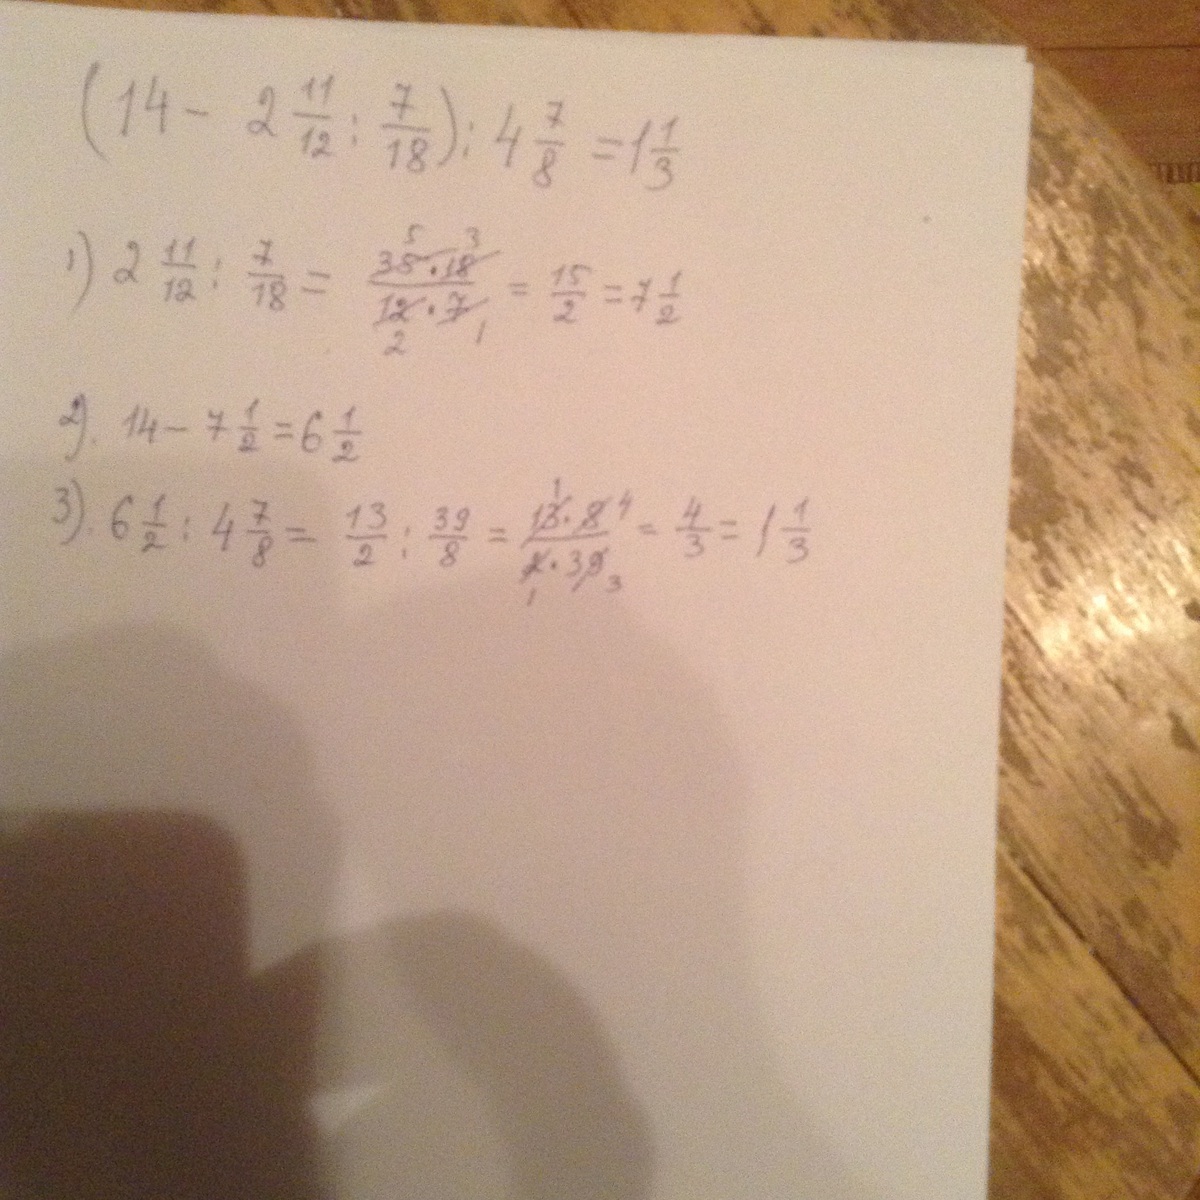 (14 - 2 11/12 : 7/18) : 4 7/8 = 1 1/3
1) 2 11/12 : 7/18 = 35 5 · 18 3 / 12 2 · 7 1 = 15/2 = 7 1/2
2). 14 - 7 1/2 = 6 1/2
3). 6 1/2 : 4 7/8 = 13/2 : 39/8 = 13 1 · 8 4 / 2 1 · 39 3 = 4/3 = 1 1/3